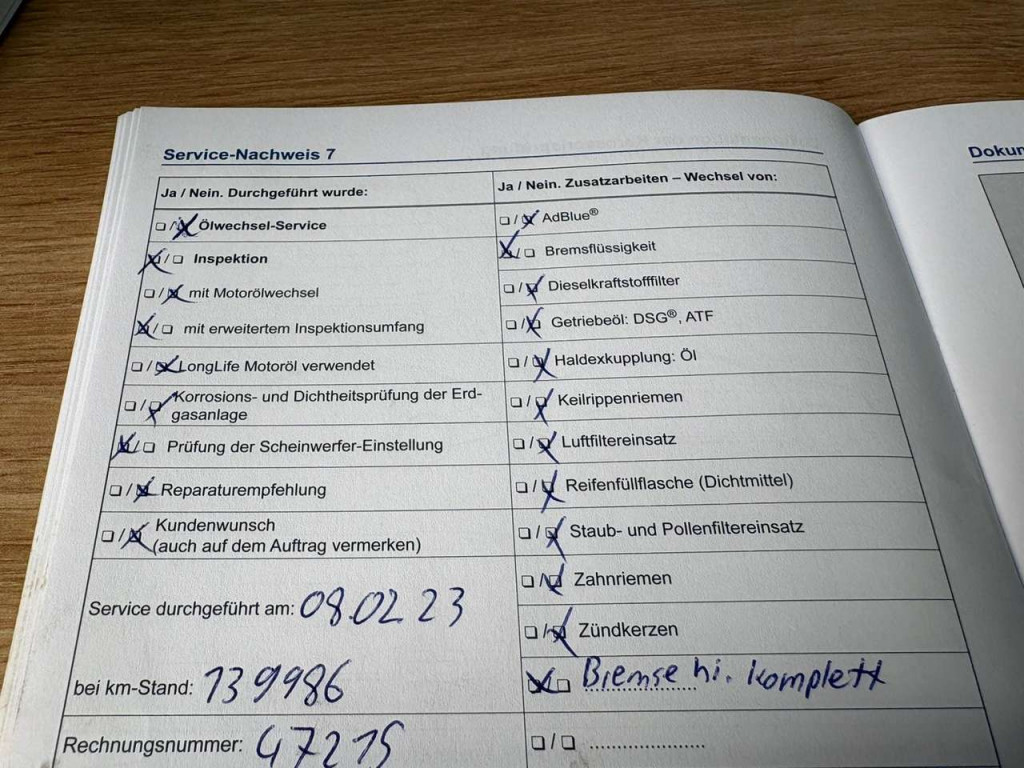 Service-Nachweis 7
Ja / Nein. Durchgeführt wurde:
☐/☒ Ölwechsel-Service
☒/☐ Inspektion
☐/☒ mit Motorölwechsel
☒/☐ mit erweitertem Inspektionsumfang
☐/☒ LongLife Motoröl verwendet
☐/☒ Korrosions- und Dichtheitsprüfung der Erd-
gasanlage
☒/☐ Prüfung der Scheinwerfer-Einstellung
☐/☒ Reparaturempfehlung
☐/☒ Kundenwunsch
(auch auf dem Auftrag vermerken)
Service durchgeführt am: 08.02.23
bei km-Stand: 139986
Rechnungsnummer: 47215
Ja / Nein. Zusatzarbeiten – Wechsel von:
☐/☒ AdBlue®
☒/☐ Bremsflüssigkeit
☐/☒ Dieselkraftstofffilter
☐/☒ Getriebeöl: DSG®, ATF
☐/☒ Haldexkupplung: Öl
☐/☒ Keilrippenriemen
☐/☒ Luftfiltereinsatz
☐/☒ Reifenfüllflasche (Dichtmittel)
☐/☒ Staub- und Pollenfiltereinsatz
☐/☒ Zahnriemen
☐/☒ Zündkerzen
☒/☐ Bremse hi. komplett
☐/☐ ......................
Dokun